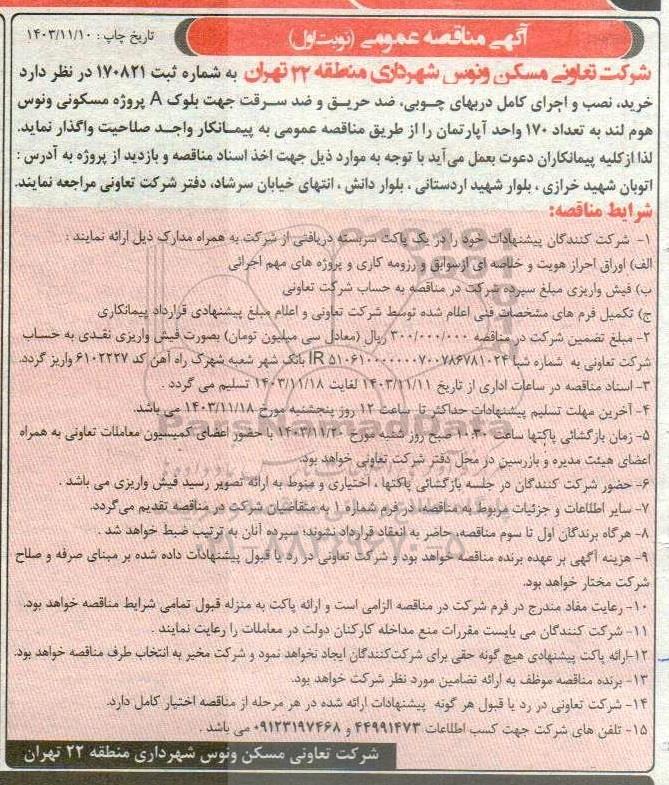 آگهی مناقصه عمومی (نوبت اول)
تاریخ چاپ : ۱۴۰۳/۱۱/۱۰
شرکت تعاونی مسکن ونوس شهرداری منطقه ۲۲ تهران به شماره ثبت ۱۷۰۸۲۱ در نظر دارد
خرید، نصب و اجرای کامل دربهای چوبی، ضد حریق و ضد سرقت جهت بلوک A پروژه مسکونی ونوس
هوم لند به تعداد ۱۷۰ واحد آپارتمان را از طریق مناقصه عمومی به پیمانکار واجد صلاحیت واگذار نماید.
لذا ازکلیه پیمانکاران دعوت بعمل می‌آید با توجه به موارد ذیل جهت اخذ اسناد مناقصه و بازدید از پروژه به آدرس :
اتوبان شهید خرازی ، بلوار شهید اردستانی ، بلوار دانش ، انتهای خیابان سرشاد، دفتر شرکت تعاونی مراجعه نمایند.
شرایط مناقصه:
۱- شرکت کنندگان پیشنهادات خود را در یک پاکت سربسته دریافتی از شرکت به همراه مدارک ذیل ارائه نمایند :
الف) اوراق احراز هویت و خلاصه ای ازسوابق و رزومه کاری و پروژه های مهم اجرائی
ب) فیش واریزی مبلغ سپرده شرکت در مناقصه به حساب شرکت تعاونی
ج) تکمیل فرم های مشخصات فنی اعلام شده توسط شرکت تعاونی و اعلام مبلغ پیشنهادی قرارداد پیمانکاری
۲- مبلغ تضمین شرکت در مناقصه ۳۰۰/۰۰۰/۰۰۰ ریال (معادل سی میلیون تومان) بصورت فیش واریزی نقدی به حساب
شرکت تعاونی به شماره شبا IR ۵۱۰۶۱۰۰۰۰۰۰۰۷۰۰۷۸۶۷۸۱۰۲۴ بانک شهر شعبه شهرک راه آهن کد ۶۱۰۲۲۲۷ واریز گردد.
۳- اسناد مناقصه در ساعات اداری از تاریخ ۱۴۰۳/۱۱/۱۱ لغایت ۱۴۰۳/۱۱/۱۸ تسلیم می گردد .
۴- آخرین مهلت تسلیم پیشنهادات حداکثر تا ساعت ۱۲ روز پنجشنبه مورخ ۱۴۰۳/۱۱/۱۸ می باشد.
۵- زمان بازگشائی پاکتها ساعت ۱۰:۳۰ صبح روز شنبه مورخ ۱۴۰۳/۱۱/۲۰ با حضور اعضای کمیسیون معاملات تعاونی به همراه
اعضای هیئت مدیره و بازرسین در محل دفتر شرکت تعاونی خواهد بود.
۶- حضور شرکت کنندگان در جلسه بازگشائی پاکتها ، اختیاری و منوط به ارائه تصویر رسید فیش واریزی می باشد .
۷- سایر اطلاعات و جزئیات مربوط به مناقصه، در فرم شماره ۱ به متقاضیان شرکت در مناقصه تقدیم می‌گردد.
۸- هرگاه برندگان اول تا سوم مناقصه، حاضر به انعقاد قرارداد نشوند؛ سپرده آنان به ترتیب ضبط خواهد شد .
۹- هزینه آگهی بر عهده برنده مناقصه خواهد بود و شرکت تعاونی در رد یا قبول پیشنهادات داده شده بر مبنای صرفه و صلاح
شرکت مختار خواهد بود.
۱۰- رعایت مفاد مندرج در فرم شرکت در مناقصه الزامی است و ارائه پاکت به منزله قبول تمامی شرایط مناقصه خواهد بود.
۱۱- شرکت کنندگان می بایست مقررات منع مداخله کارکنان دولت در معاملات را رعایت نمایند .
۱۲-ارائه پاکت پیشنهادی هیچ گونه حقی برای شرکت‌کنندگان ایجاد نخواهد نمود و شرکت مخیر به انتخاب طرف مناقصه خواهد بود.
۱۳- برنده مناقصه موظف به ارائه تضامین مورد نظر شرکت خواهد بود.
۱۴- شرکت تعاونی در رد یا قبول هر گونه پیشنهادات ارائه شده در هر مرحله از مناقصه اختیار کامل دارد.
۱۵- تلفن های شرکت جهت کسب اطلاعات ۴۴۹۹۱۴۷۳ و ۰۹۱۲۳۱۹۷۴۶۸ می باشد .
شرکت تعاونی مسکن ونوس شهرداری منطقه ۲۲ تهران
ParsNamadData